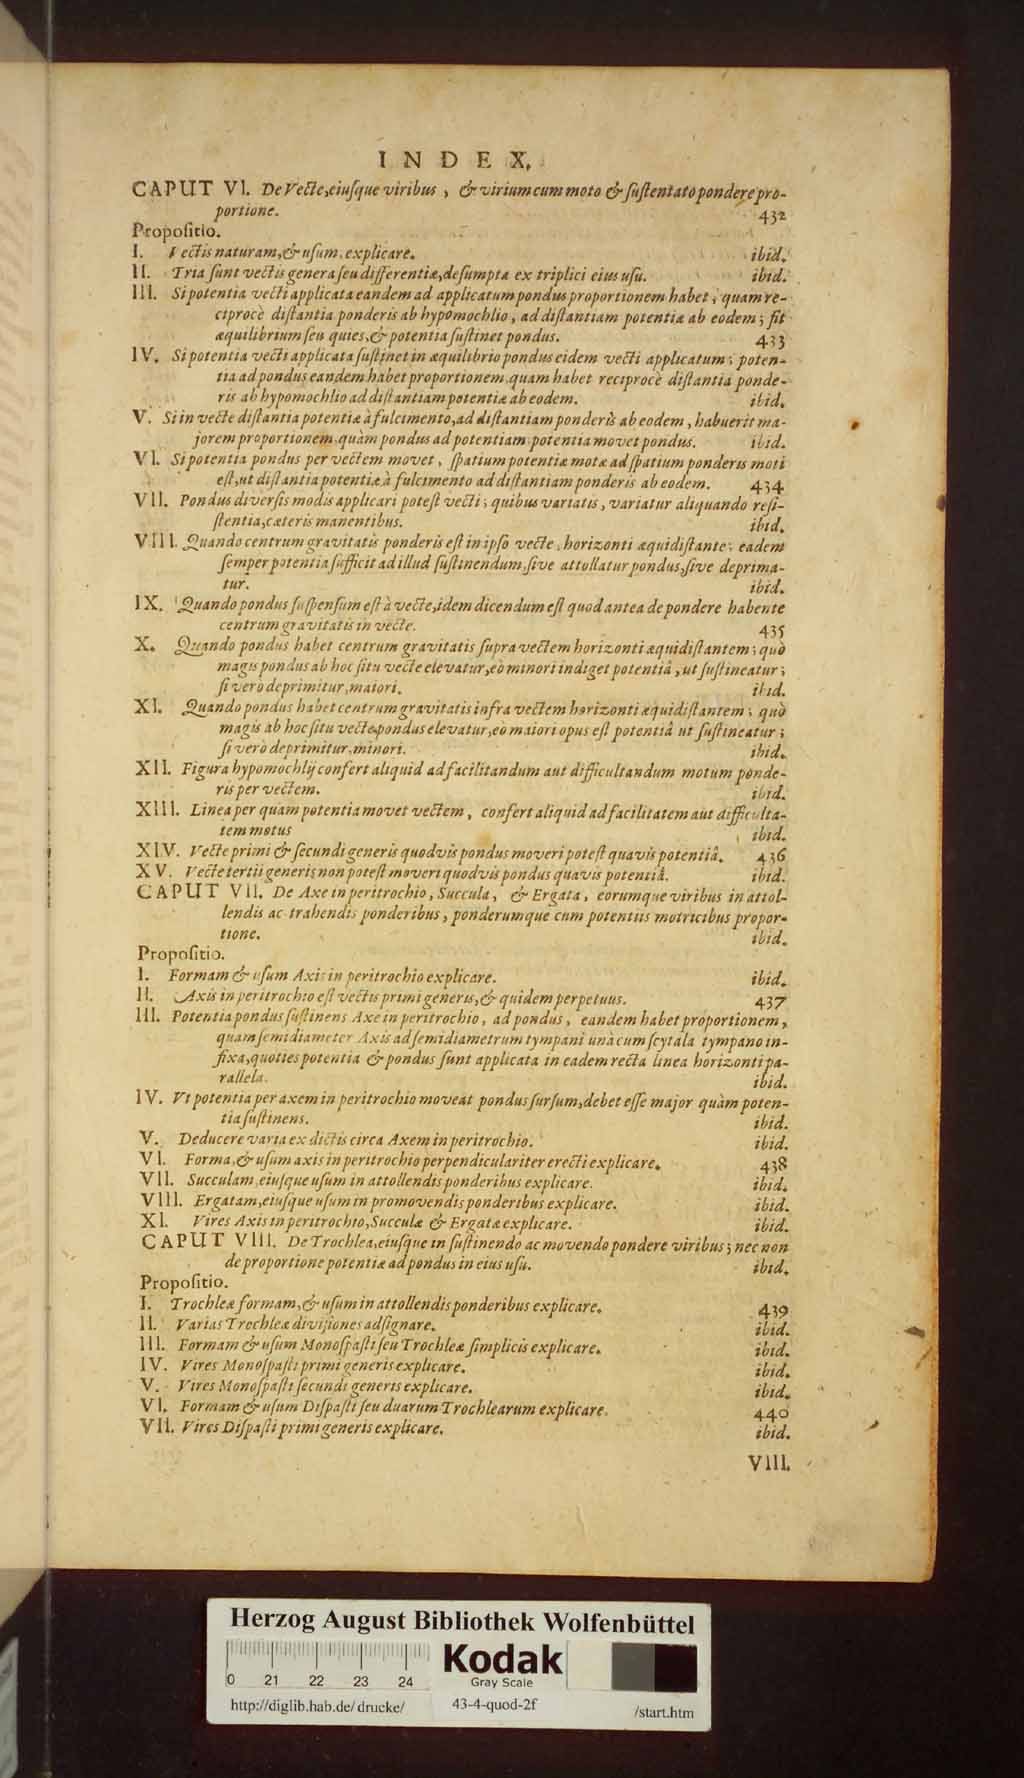 INDEX.
CAPUT VI. De Vecte, eiuſque viribus, & virium cum moto & ſuſtentato pondere pro-
portione. 432
Propoſitio.
I. Vectis naturam, & uſum explicare. ibid.
II. Tria ſunt vectis genera ſeu differentiæ, deſumptæ ex triplici eius uſu. ibid.
III. Si potentia vecti applicata eandem ad applicatum pondus proportionem habet, quam re-
ciprocè diſtantia ponderis ab hypomochlio, ad diſtantiam potentiæ ab eodem; fit
æquilibrium ſeu quies, & potentia ſuſtinet pondus. 433
IV. Si potentia vecti applicata ſuſtinet in æquilibrio pondus eidem vecti applicatum; poten-
tia ad pondus eandem habet proportionem, quam habet reciprocè diſtantia ponde-
ris ab hypomochlio ad diſtantiam potentiæ ab eodem. ibid.
V. Si in vecte diſtantia potentiæ à fulcimento, ad diſtantiam ponderis ab eodem, habuerit ma-
jorem proportionem, quàm pondus ad potentiam: potentia movet pondus. ibid.
VI. Si potentia pondus per vectem movet, ſpatium potentiæ motæ ad ſpatium ponderis moti
eſt, ut diſtantia potentiæ à fulcimento ad diſtantiam ponderis ab eodem. 434
VII. Pondus diverſis modis applicari poteſt vecti; quibus variatis, variatur aliquando reſi-
ſtentia, cæteris manentibus. ibid.
VIII. Quando centrum gravitatis ponderis eſt in ipſo vecte, horizonti æquidiſtante; eadem
ſemper potentia ſufficit ad illud ſuſtinendum, ſive attollatur pondus, ſive deprima-
tur. ibid.
IX. Quando pondus ſuſpenſum eſt à vecte, idem dicendum eſt quod antea de pondere habente
centrum gravitatis in vecte. 435
X. Quando pondus habet centrum gravitatis ſupra vectem horizonti æquidiſtantem; quò
magis pondus ab hoc ſitu vecte elevatur, eò minori indiget potentiâ, ut ſuſtineatur;
ſi vero deprimitur, maiori. ibid.
XI. Quando pondus habet centrum gravitatis infra vectem horizonti æquidiſtantem; quò
magis ab hoc ſitu vecte pondus elevatur, eò maiori opus eſt potentiâ ut ſuſtineatur;
ſi verò deprimitur, minori. ibid.
XII. Figura hypomochlij confert aliquid ad facilitandum aut difficultandum motum ponde-
ris per vectem. ibid.
XIII. Linea per quam potentia movet vectem, confert aliquid ad facilitatem aut difficulta-
tem motus ibid.
XIV. Vecte primi & ſecundi generis quodvis pondus moveri poteſt quavis potentiâ. 436
XV. Vecte tertii generis non poteſt moveri quodvis pondus quavis potentiâ. ibid.
CAPUT VII. De Axe in peritrochio, Succula, & Ergata, eorumque viribus in attol-
lendis ac trahendis ponderibus, ponderumque cum potentiis motricibus propor-
tione. ibid.
Propoſitio.
I. Formam & uſum Axis in peritrochio explicare. ibid.
II. Axis in peritrochio eſt vectis primi generis, & quidem perpetuus. 437
III. Potentia pondus ſuſtinens Axe in peritrochio, ad pondus, eandem habet proportionem,
quam ſemidiameter Axis ad ſemidiametrum tympani unà cum ſcytala tympano in-
fixa, quoties potentia & pondus ſunt applicata in eadem recta linea horizonti pa-
rallela. ibid.
IV. Vt potentia per axem in peritrochio moveat pondus ſurſum, debet eſſe major quàm poten-
tia ſuſtinens. ibid.
V. Deducere varia ex dictis circa Axem in peritrochio. ibid.
VI. Forma, & uſum axis in peritrochio perpendiculariter erecti explicare. 438
VII. Succulam, eiuſque uſum in attollendis ponderibus explicare. ibid.
VIII. Ergatam, eiuſque uſum in promovendis ponderibus explicare. ibid.
XI. Vires Axis in peritrochio, Succulæ & Ergatæ explicare. ibid.
CAPUT VIII. De Trochlea, eiuſque in ſuſtinendo ac movendo pondere viribus; nec non
de proportione potentiæ ad pondus in eius uſu. ibid.
Propoſitio.
I. Trochleæ formam, & uſum in attollendis ponderibus explicare. 439
II. Varias Trochleæ diviſiones adſignare. ibid.
III. Formam & uſum Monoſpaſti ſeu Trochleæ ſimplicis explicare. ibid.
IV. Vires Monoſpaſti primi generis explicare. ibid.
V. Vires Monoſpaſti ſecundi generis explicare. ibid.
VI. Formam & uſum Diſpaſti ſeu duarum Trochlearum explicare. 440
VII. Vires Diſpaſti primi generis explicare. ibid.
VIII.
Herzog August Bibliothek Wolfenbüttel
0 21 22 23 24
Kodak
Gray Scale
http://diglib.hab.de/drucke/ 43-4-quod-2f /start.htm